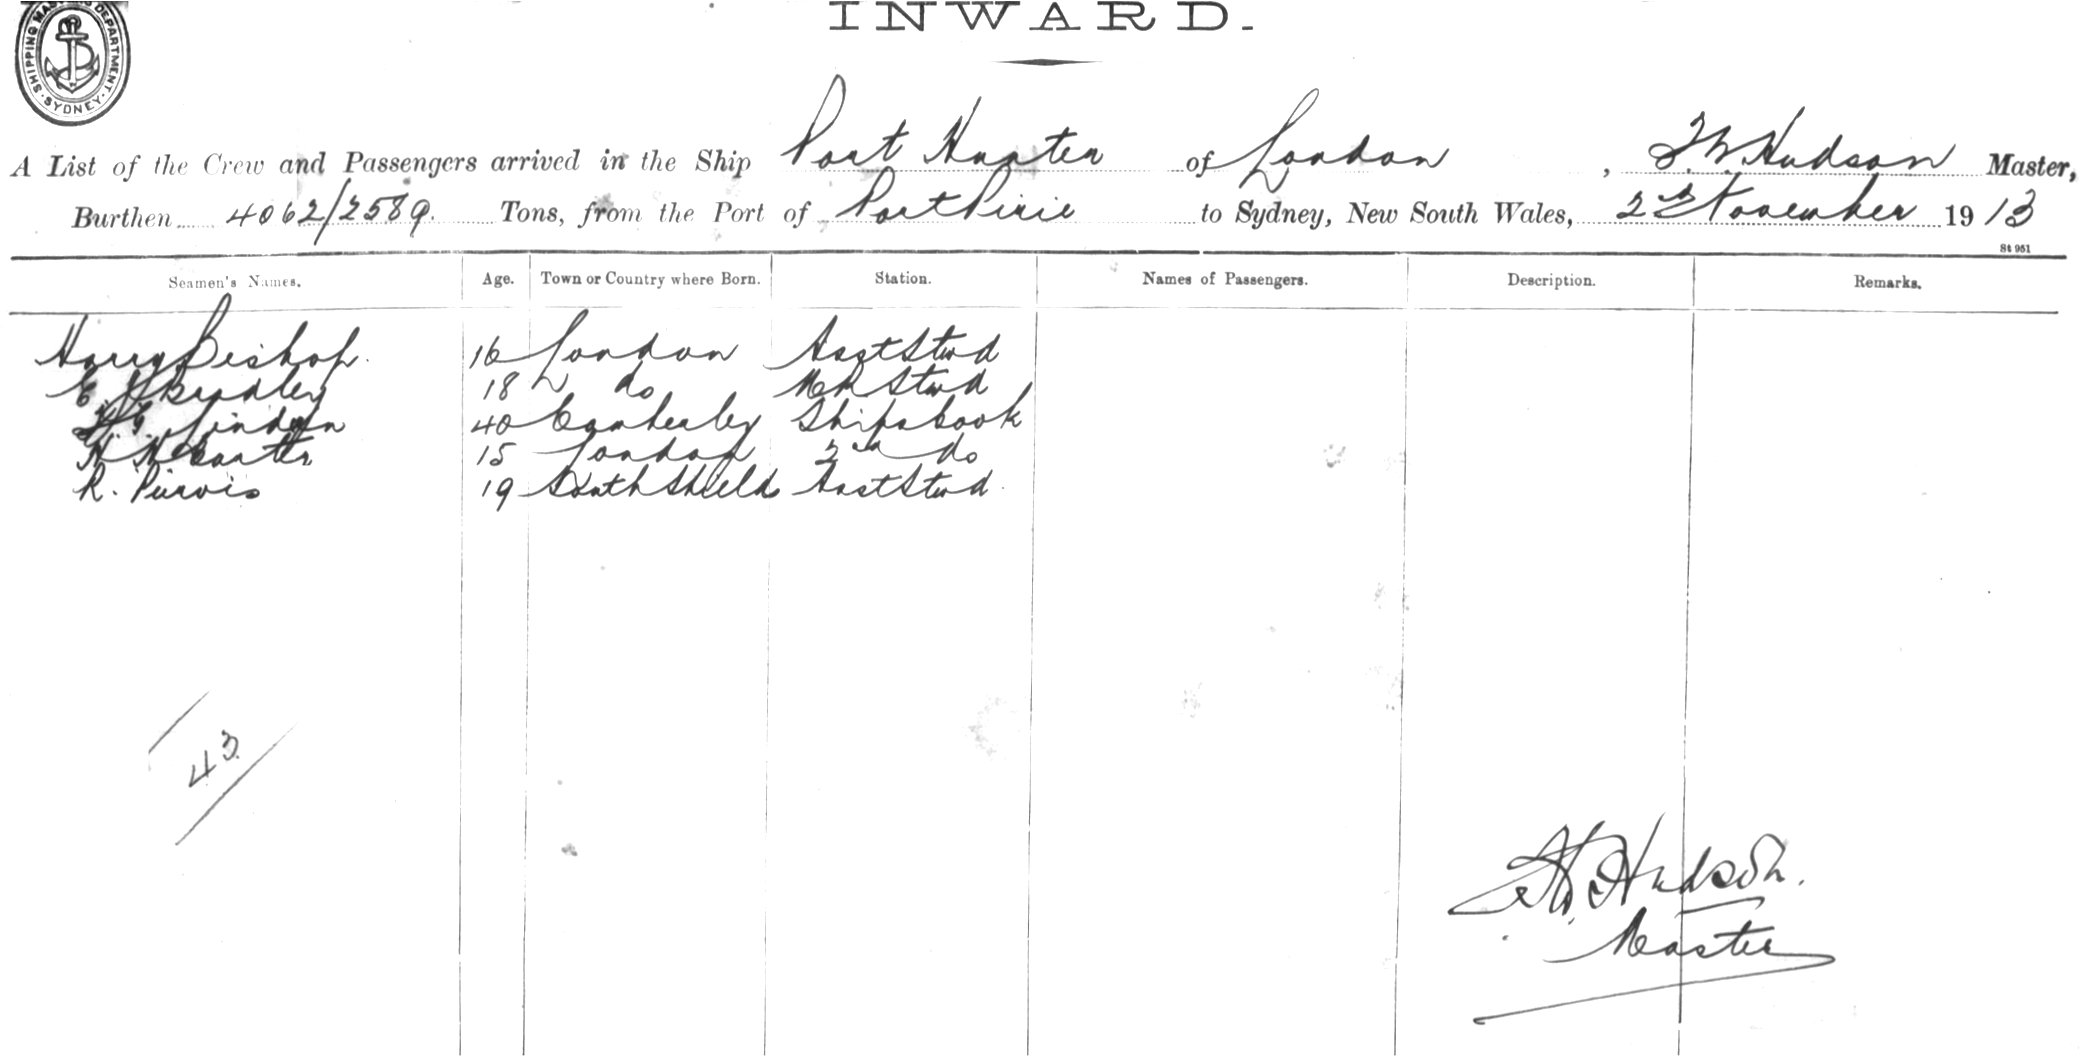 INWARD.
SHIPPING MASTERS DEPARTMENT. SYDNEY.
A List of the Crew and Passengers arrived in the Ship Port Hunter of London, Hudson Master,
Burthen 4062/2589. Tons, from the Port of Port Pirie to Sydney, New South Wales, 2nd November 1913
St 951
Seamen's Names. Age. Town or Country where Born. Station. Names of Passengers. Description. Remarks.
Harry Bishop. 16 London Asst Stwd
E. 18 do Stwd
40 Camberley Ships Cook
15 London 2nd do
R. Purvis 19 South Shields Asst Stwd.
43
Hudson.
Master